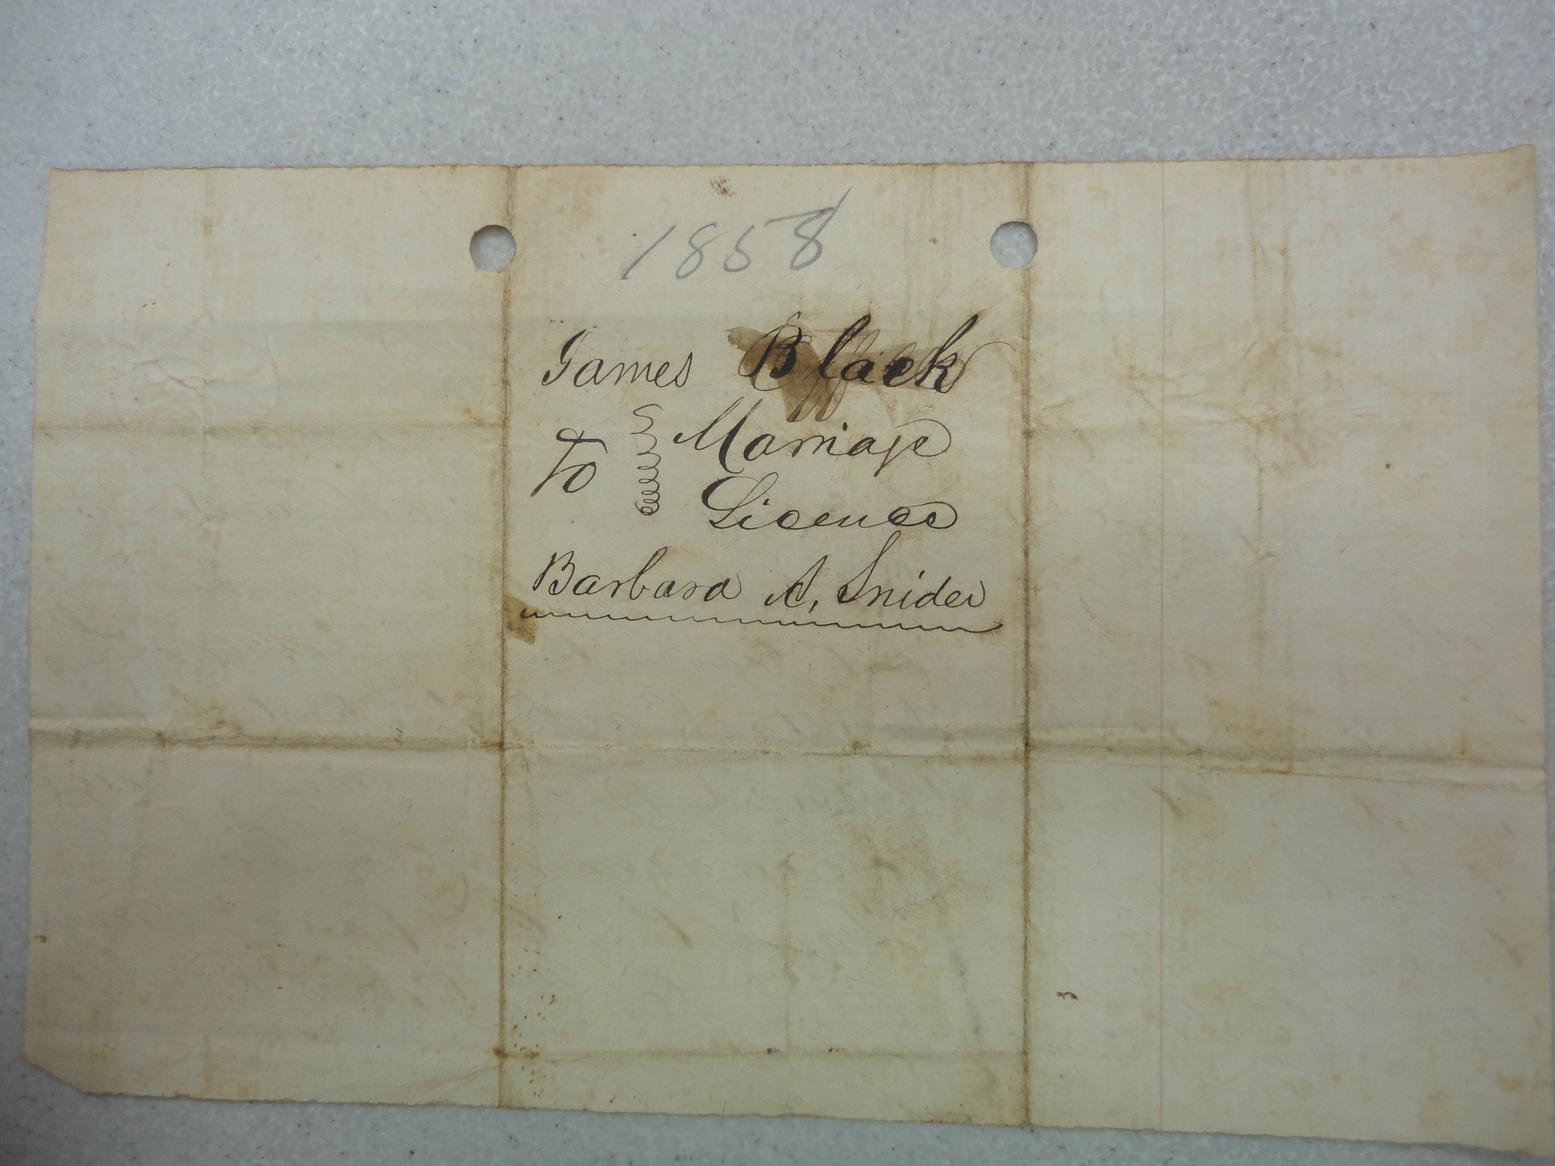 1858
James Black
To Marriage
Licence
Barbara A, Snider